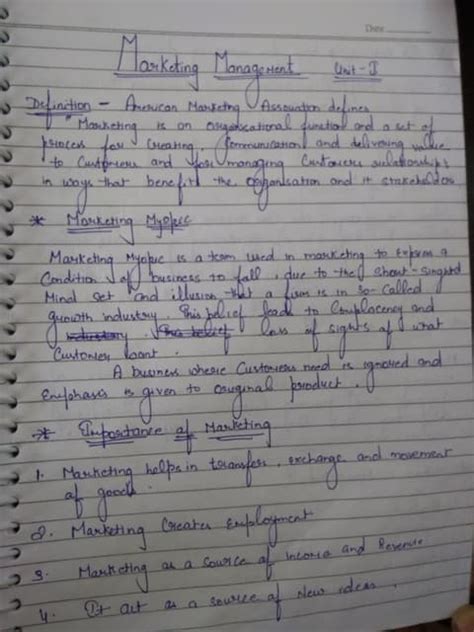 Date
Marketing Management Unit-I
Definition - American Marketing Association defines
"Marketing is an organisational function and a set of
process for creating, Communication and delivering value
to Customers and for managing Customers relationships
in ways that benefit the organisation and it stakeholders
* Marketing Myopic
Marketing Myopic is a team used in marketing to Express a
Condition of business to fall, due to the short-singted
Mind set and illusion that a firm is in so-called
growth industry. This belief lead to Complacency and
industry. This belief loss of sights of what
Customer want.
A business where Customers need is ignored and
Emphasis is given to original product.
* Importance of Marketing
1. Marketing helps in transfer, exchange and movement
of goods.
2. Marketing Creates Employment
3. Marketing as a Source of Income and Revenue
4. It act as a source of New ideas.